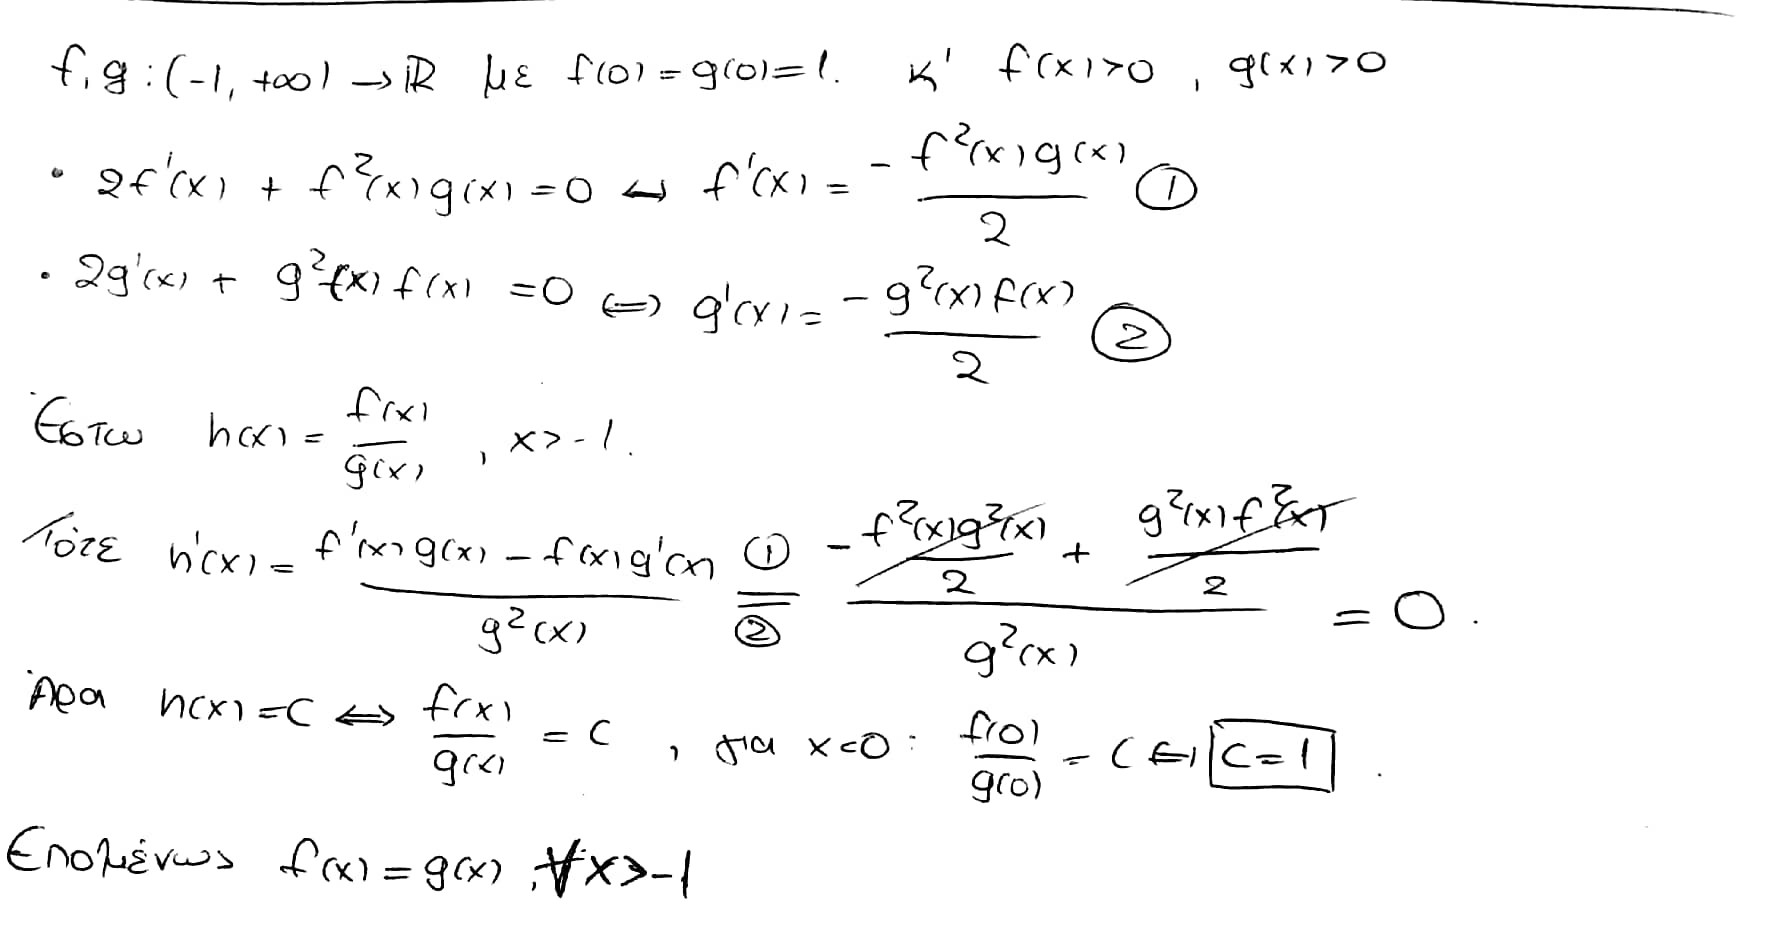 f, g : (-1, +∞) → ℝ με f(0) = g(0) = 1. κ' f(x) > 0 , g(x) > 0
• 2f'(x) + f²(x)g(x) = 0 ↔ f'(x) = -f²(x)g(x)/2 ①
• 2g'(x) + g²(x)f(x) = 0 ⇔ g'(x) = -g²(x)f(x)/2 ②
Έστω h(x) = f(x)/g(x) , x > -1.
Τότε h'(x) = (f'(x)g(x) - f(x)g'(x))/g²(x) =①② (-f²(x)g²(x)/2 + g²(x)f²(x)/2)/g²(x) = 0.
Άρα h(x) = C ⇔ f(x)/g(x) = C , για x=0: f(0)/g(0) = C ⇔ C = 1.
Επομένως f(x) = g(x), ∀x > -1